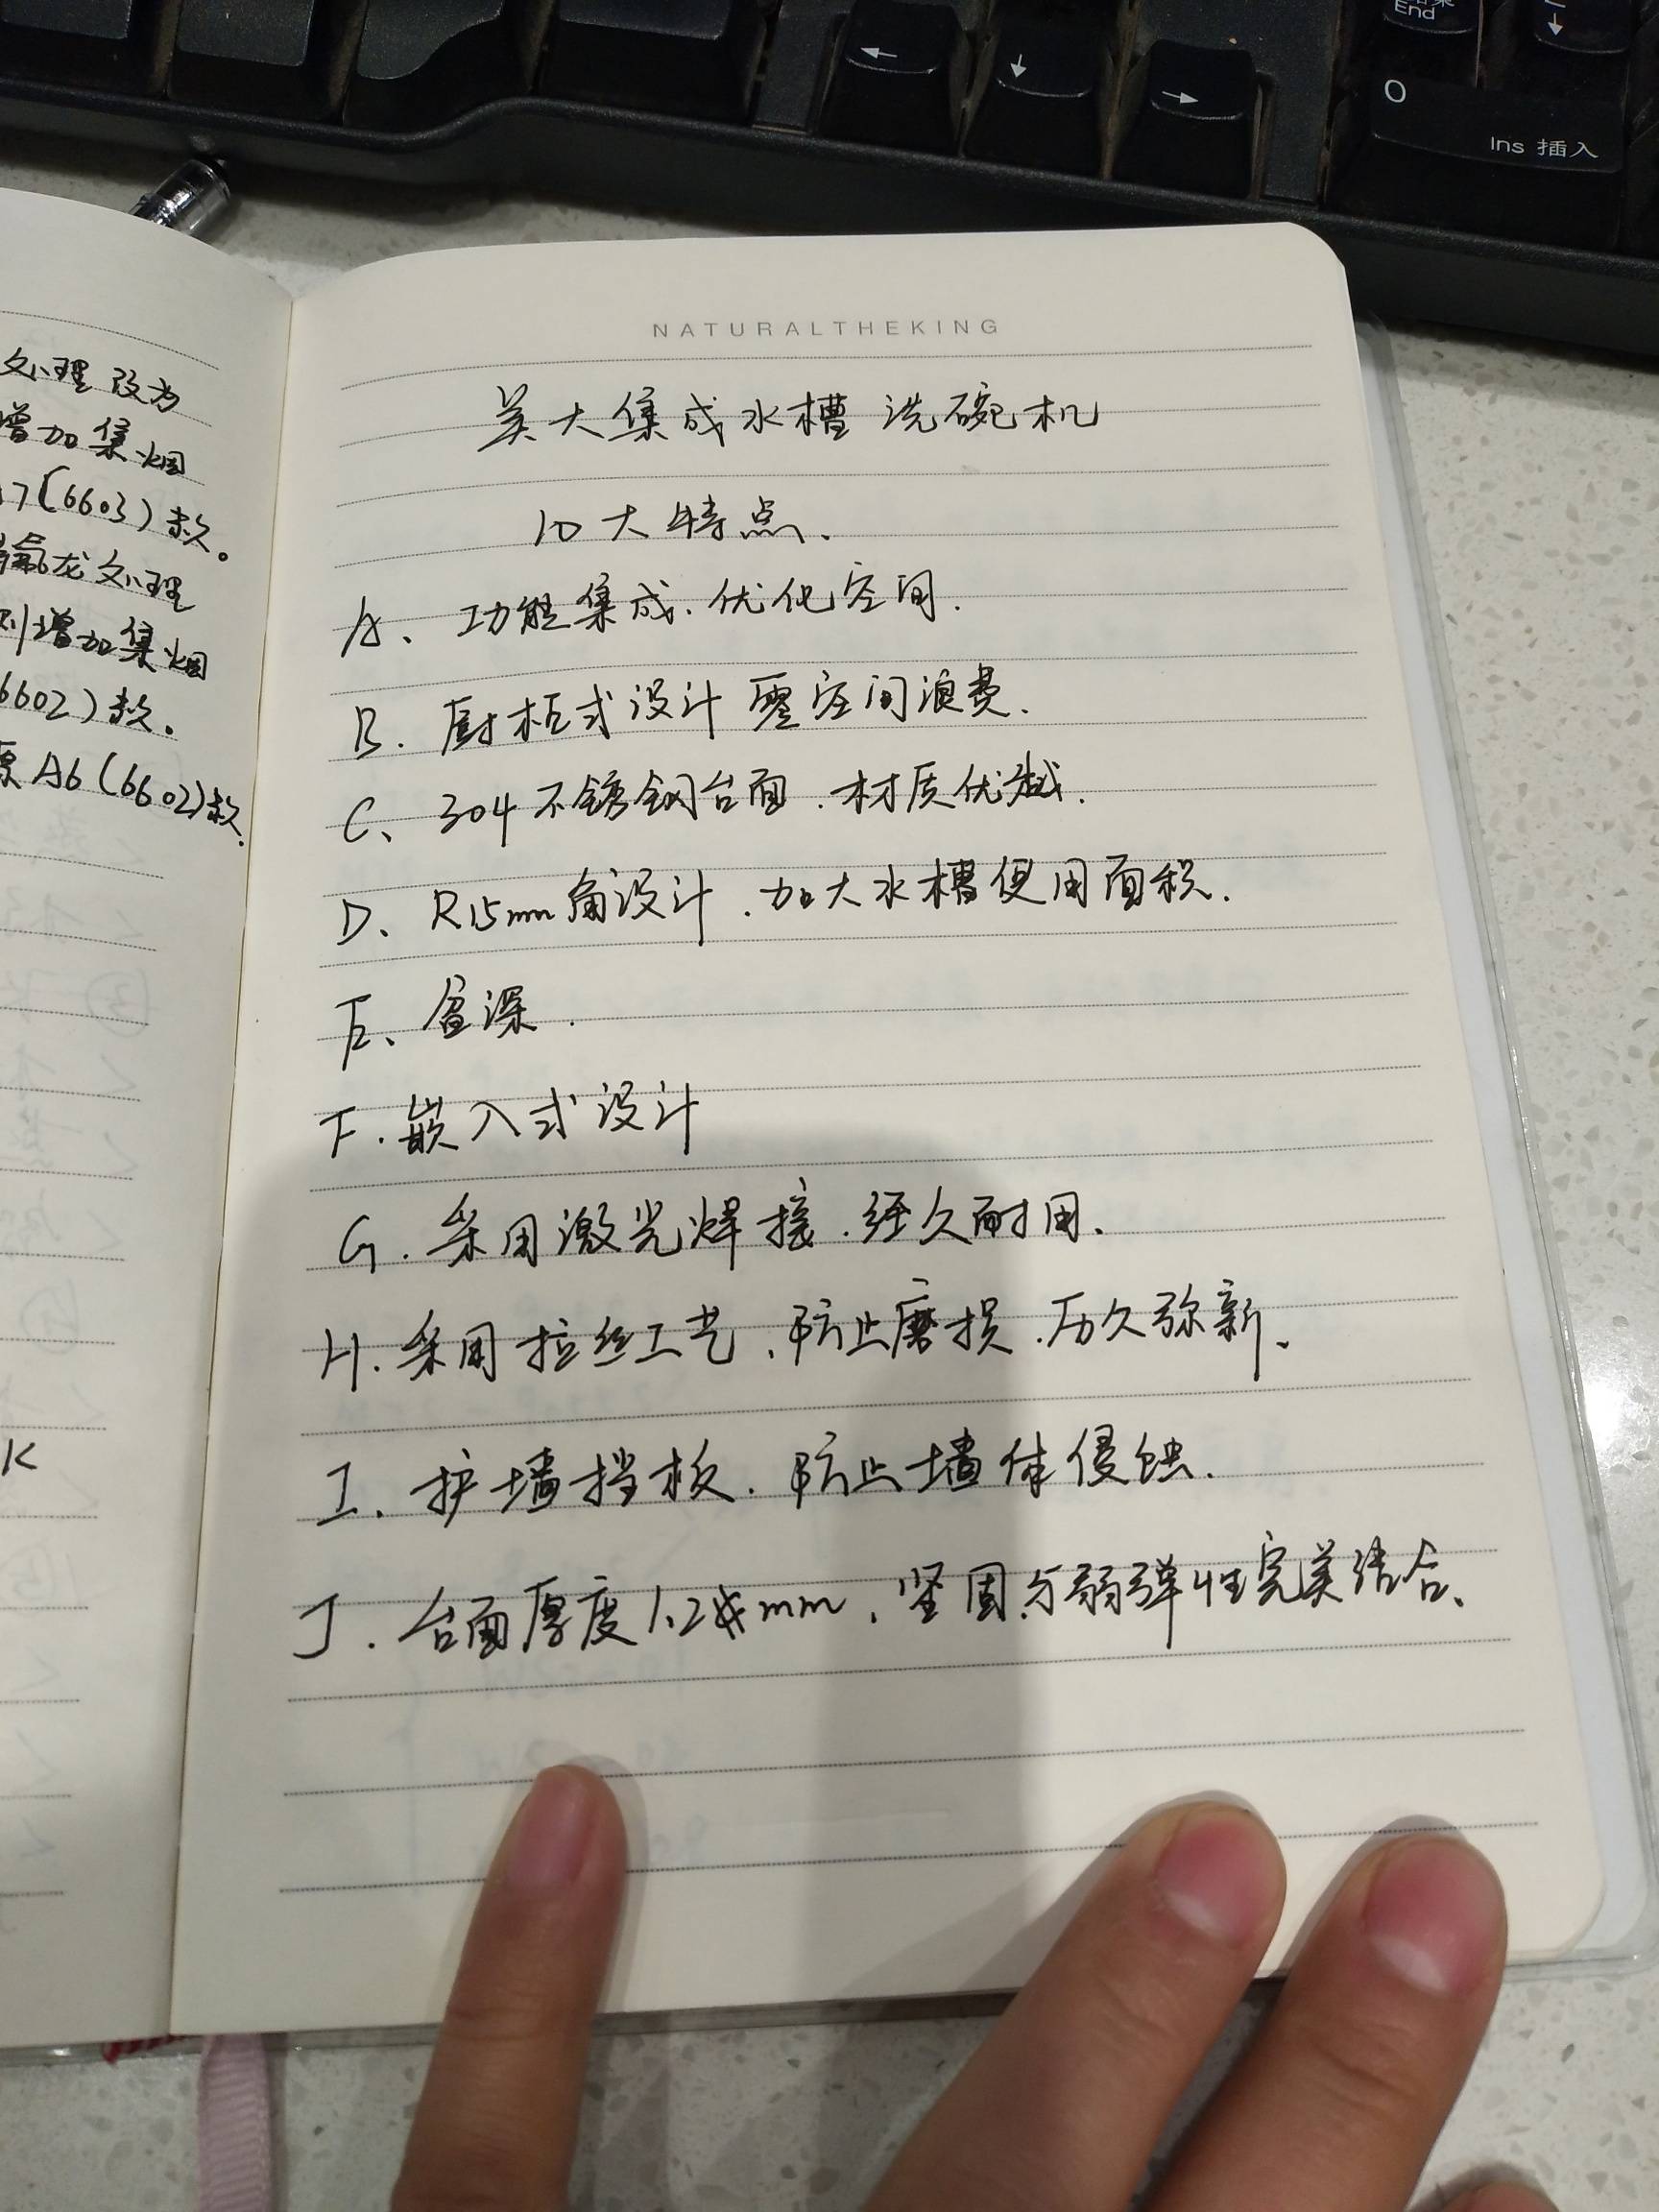 End
Ins 插入
0
文理 改为
增加集烟
7(6603)款。
氟龙文理
则增加集烟
6602)款。
原A6(6602)款.
K
NATURALTHEKING
美大集成水槽 洗碗机
10大特点.
A、功能集成.优化空间.
B.厨柜式设计 零空间浪费.
C、304不锈钢台面.材质优越.
D、R15mm角设计.加大水槽使用面积.
E、盆深.
F.嵌入式设计
G.采用激光焊接.经久耐用.
H.采用拉丝工艺.防止磨损.历久弥新.
I.护墙挡板.防止墙体侵蚀.
J.台面厚度1.2mm.坚固与弱弹性完美结合.